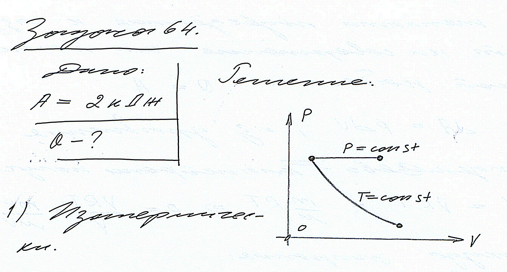 Задача 64.
Дано:
Решение:
A = 2 кДж
Q - ?
P
P = const
T = const
1) Изотермичес-
ки.
0
V